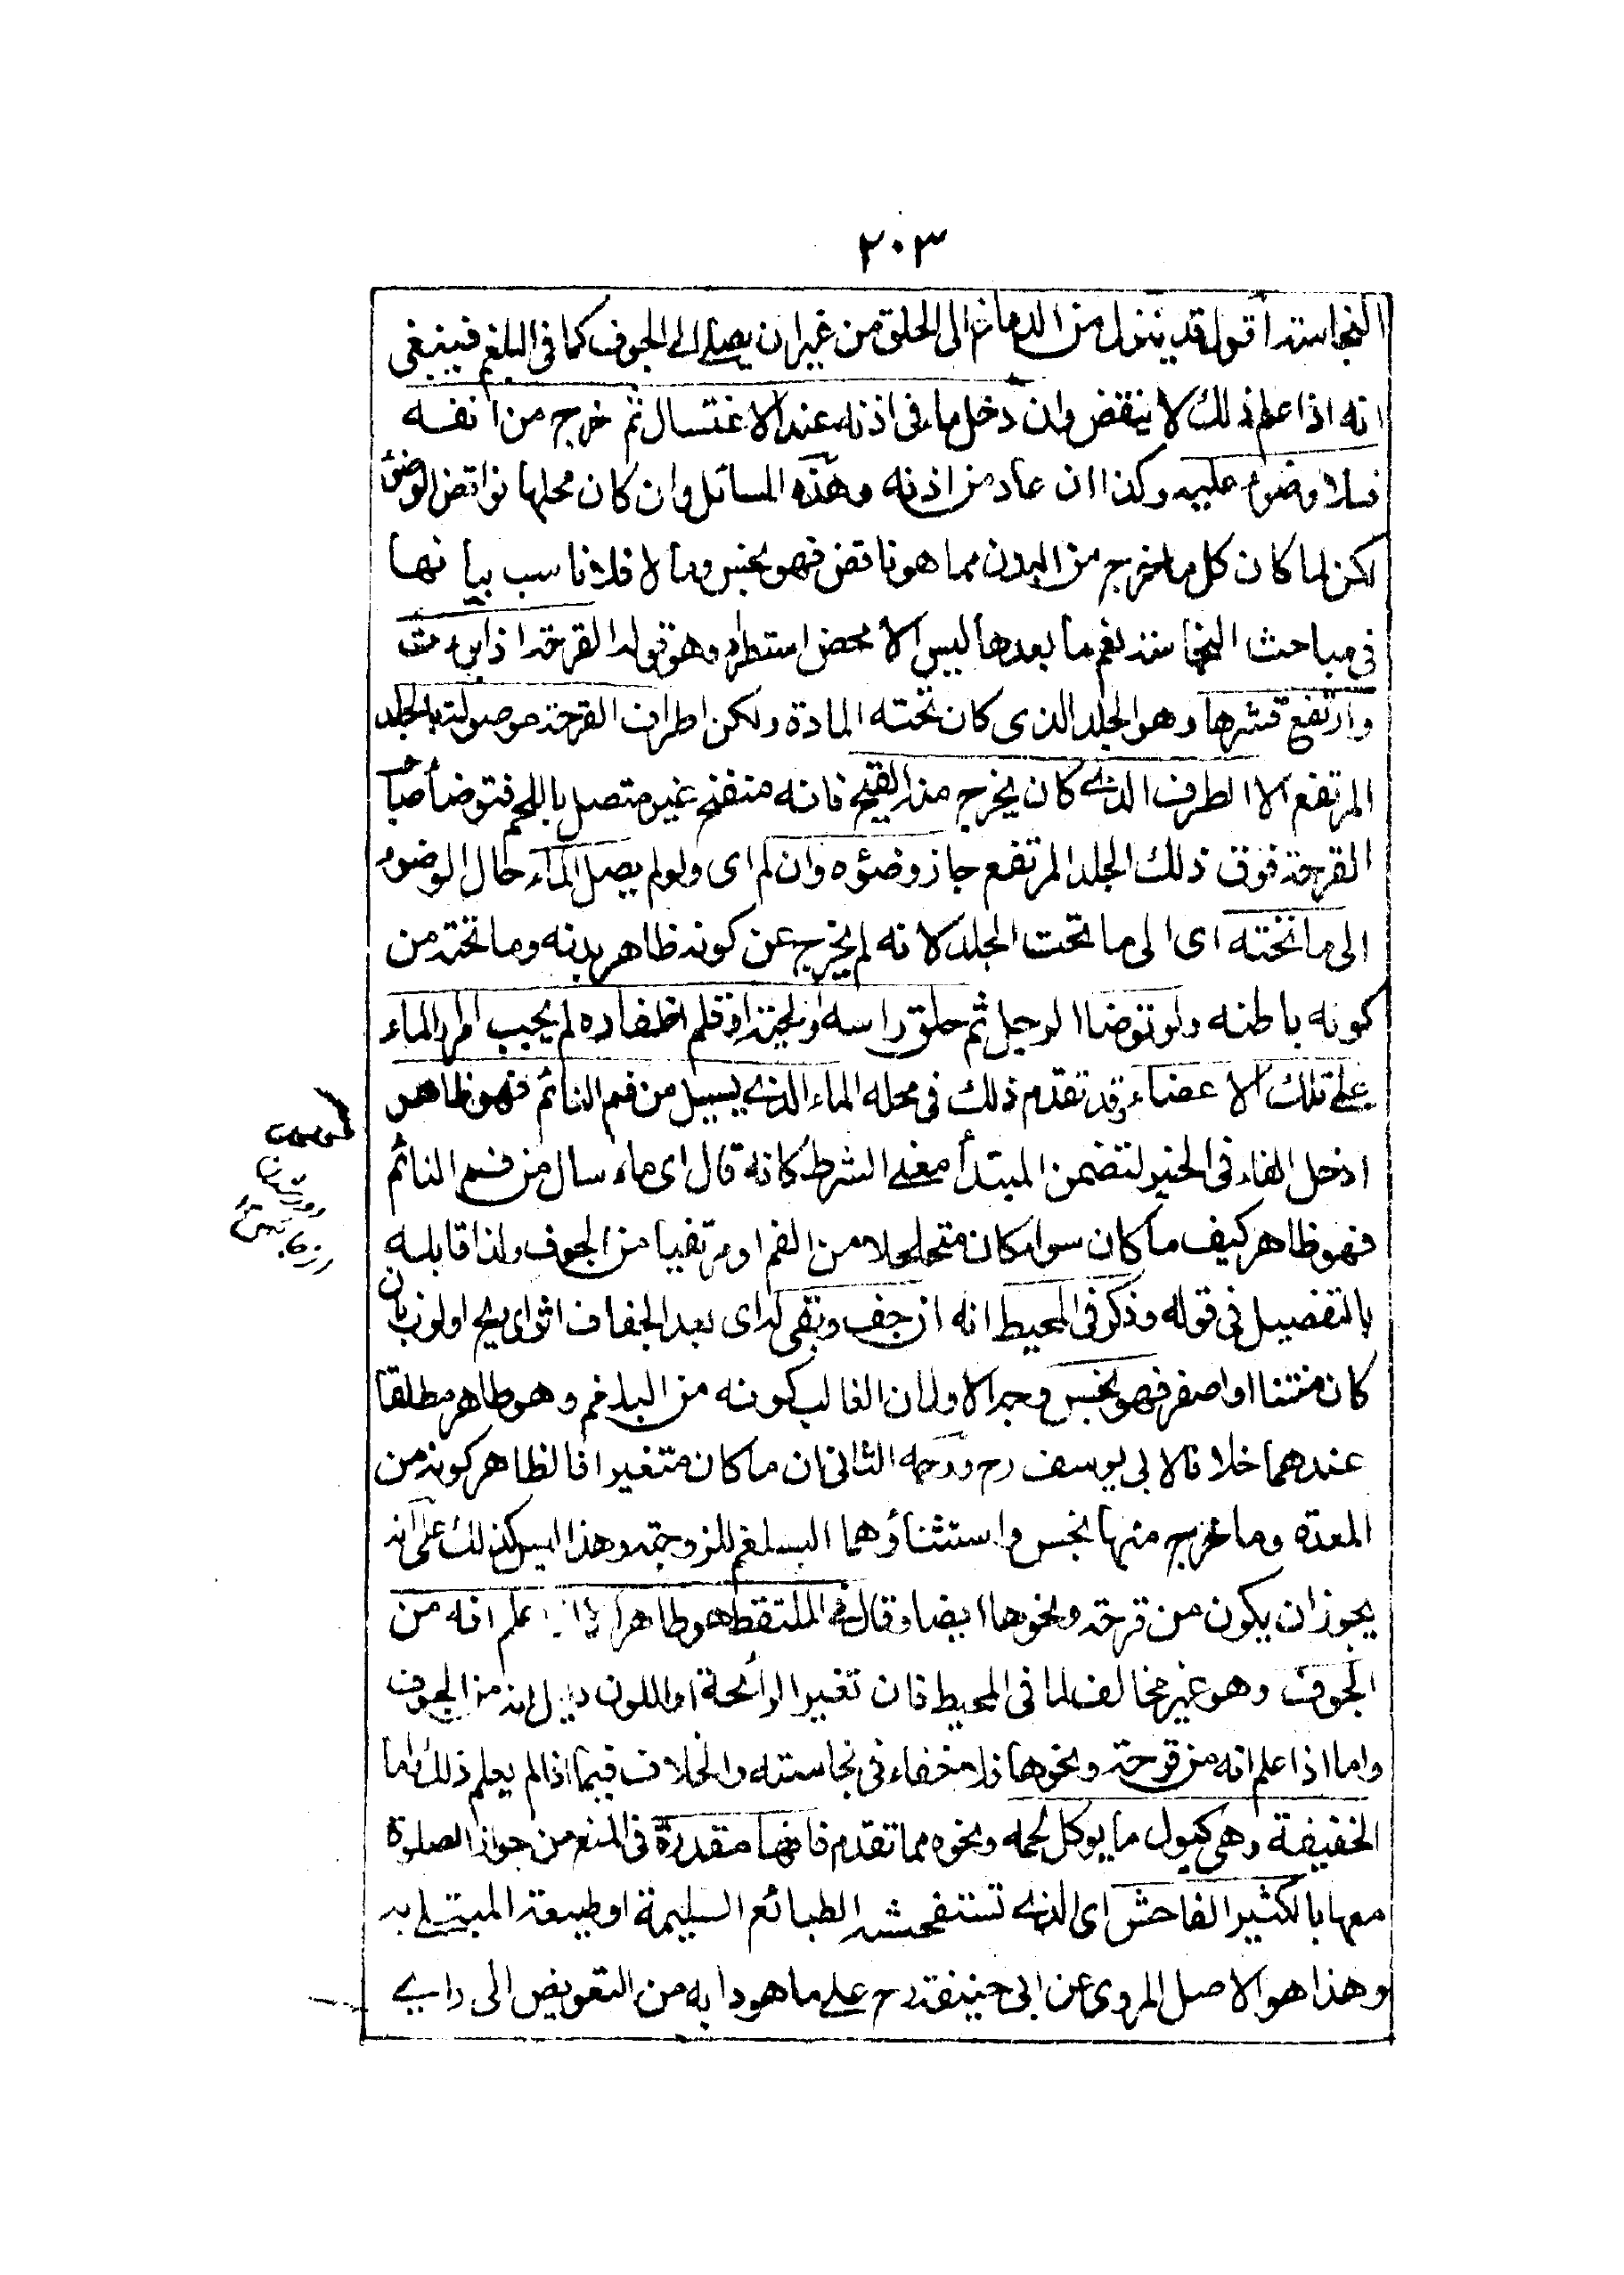 ٢٠٣
النجاسة اقول قد ينزل من الدماغ الى الحلق من غير ان يصل الى الجوف كما فى البلغم فينبغى
انه اذا علم ذلك لا ينقض وان دخل ماء فى اذنه عند الاغتسال ثم خرج من انفسه
فلا وضوء عليه وكذا ان عاد من اذنه وهذه المسائل وان كان محلها نواقض الوضوء
لكن لما كان كل ما يخرج من البدن مما هو ناقض فهو نجس وما لا فلا ناسب بيانها
فى مباحث النجاسة نعم ما بعدها ليس الا محض استطراد وهو قوله القرحة اذا برءت
وارتفع قشرها وهو الجلد الذى كان تحته المادة ولكن اطراف القرحة موصولة بالجلد
المرتفع الا الطرف الذى كان يخرج منه القيح فانه منفتح غير متصل باللحم فتوضأ صاحب
القرحة فوق ذلك الجلد المرتفع جاز وضوءه وان لم اى ولو لم يصل الماء حال الوضوء
الى ما تحته اى الى ما تحت الجلد لانه لم يخرج عن كونه ظاهر بدنه وما تحته من
كونه باطنه ولو توضا الرجل ثم حلق راسه او لحيته او قلم اظفاره لم يجب امرار الماء
على تلك الاعضاء وقد تقدم ذلك فى محله الماء الذى يسيل من فم النائم فهو طاهر
ادخل الفاء فى الخبر لتضمن المبتدأ معنى الشرط كانه قال اى ماء سال من فم النائم
فهو طاهر كيف ما كان سواء كان متحللا من الفم او مرتقيا من الجوف ولذا قابله
بالتفصيل فى قوله وذكر فى المحيط انه ان جف وبقى له اى بعد الجفاف اثر اى ريح او لون بان
كان منتنا او اصفر فهو نجس وجه الاول ان الغالب كونه من البلغم وهو طاهر مطلقا
عندهما خلافا لابى يوسف رح ووجه الثانى ان ما كان متغيرا فالظاهر كونه من
المعدة وما خرج منها نجس واستثناؤهما البلغم للزوجته وهذا ليس كذلك على انه
يجوز ان يكون من قرحة ونحوها ايضا وقال فى الملتقط هو طاهر الا اذا علم انه من
الجوف وهو غير مخالف لما فى المحيط فان تغير الرائحة او اللون دليل انه من الجوف
واما اذا علم انه من قرحة ونحوها فلا خفاء فى نجاسته والخلاف فيما اذا لم يعلم ذلك واما
الخفيفة وهى كبول ما يوكل لحمه ونحوه مما تقدم فانها مقدرة فى المنع من جواز الصلوة
معها بالكثير الفاحش اى الذى تستفحشه الطبائع السليمة او طبيعة المبتلى به
وهذا هو الاصل المروى عن ابى حنيفة رح على ما هو دابه من التفويض الى راى